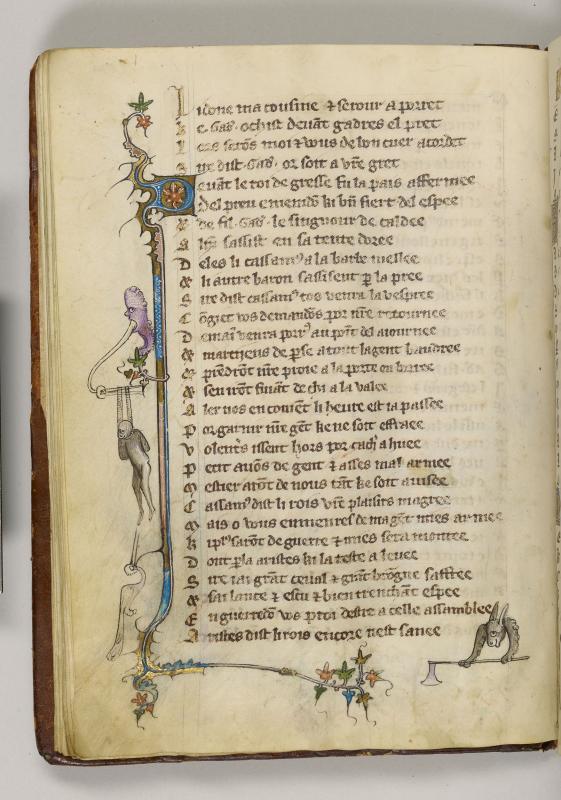 ma cousine & serour a porret
deuāt gadres el pret
moi & vus de bon cuer acordet
ue dist gad' or soit a vr̄e gret
euāt le roi de gresse fu la pais affermee
Del preu emenidō ki bn̄ fiert del espee
& de fil gad' le singnour de caldee
A sassist en sa tente doree
D eles li cassam9 a la barbe mellee
& li autre baron sassisent p la pree
S ire dist cassam9 tos venra la vespree
C ōgiet vos demandōs por nr̄e retournee
D emaī venra porr9 au point del aiournee
& de pse a tout la gent
& prēdrōt nr̄e proie a la porte
& sen irōt fuiāt de chi a la valee
A ler nos en couiēt li heure est ia passee
P or garnir nr̄e gēt ke ne soit effraee
V olent's issent hors por cach' a huee
P etit auōs de gent & asses mal armee
M estier arōt de nous tāt ke soit auisee
C assam9 dist li rois vr̄e plaisirs magree
M ais o vous enmenres de ma gēt mies armee
K i pl9 sarōt de guerre & mies sera
D ont pla aristes ki la teste a leuee
S ire iai grāt ceual & grāt brōgne saffree
& sai lance & escu & bien trenchāt espee
E n guerredō vos proi destre a celle assamblee
A ristes dist li rois encore nest sanee